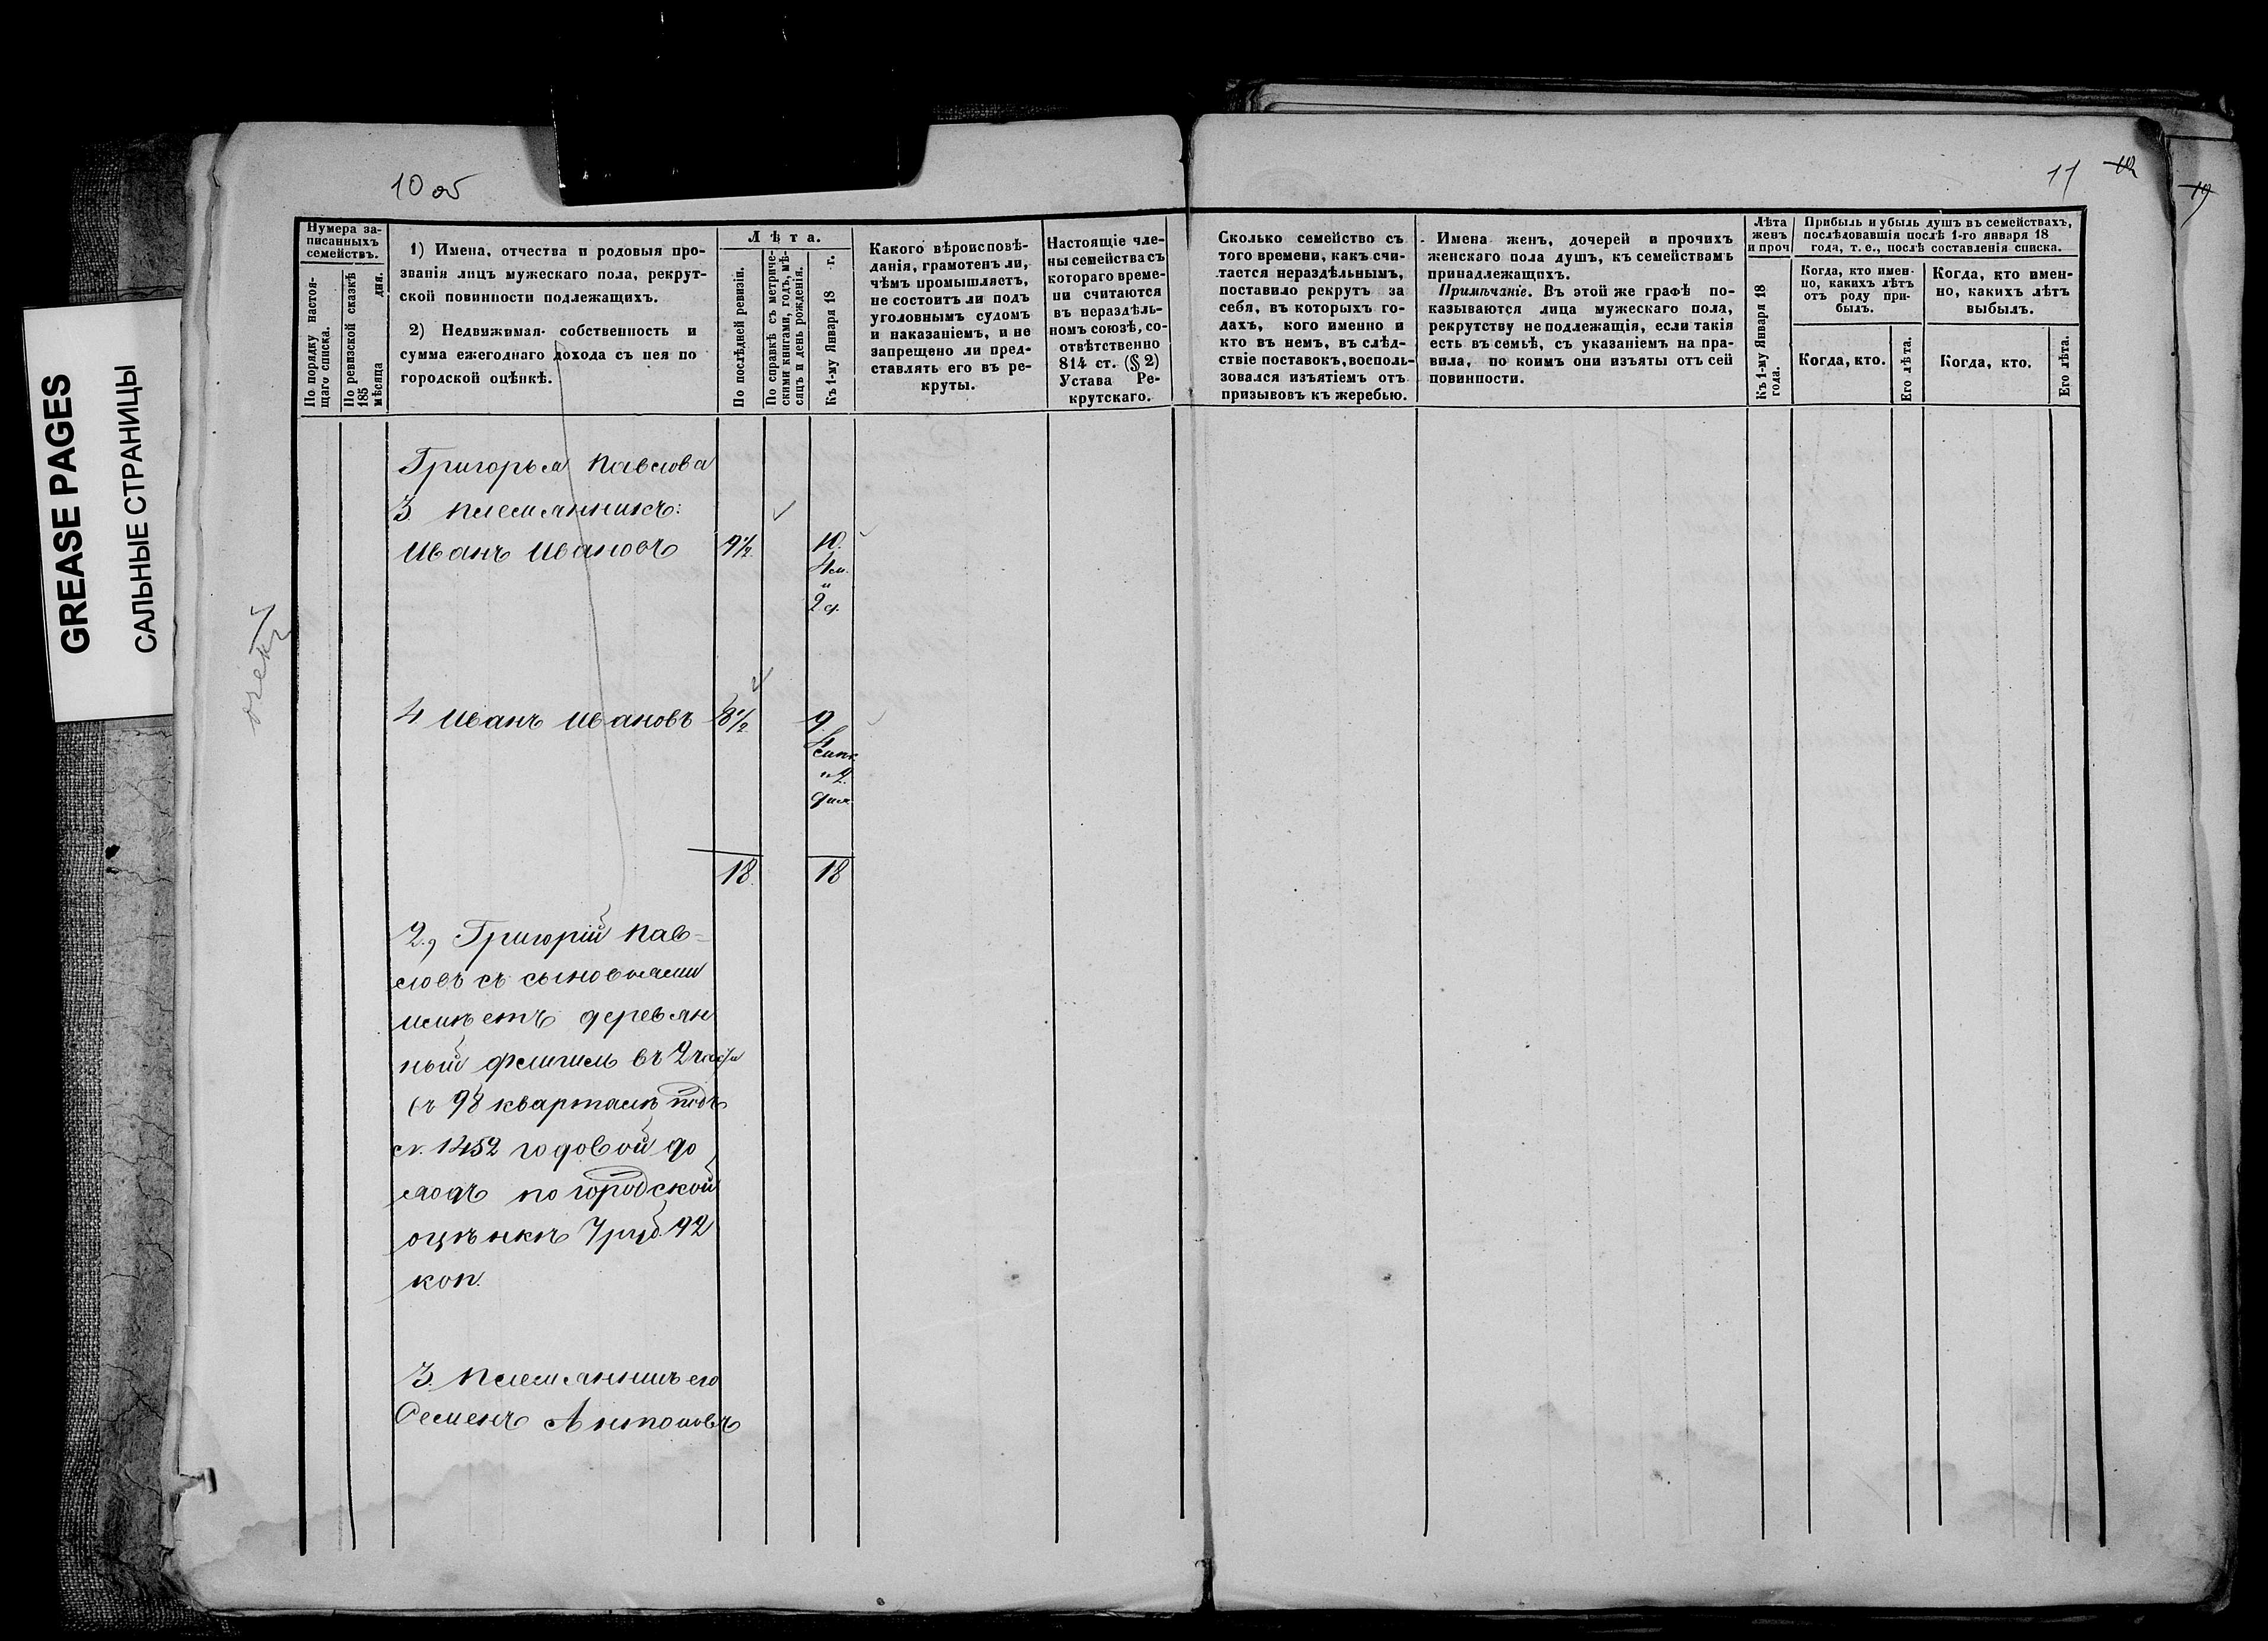 GREASE PAGES
САЛЬНЫЕ СТРАНИЦЫ
10 об
11
Нумера за-
писанныхъ
семействъ.
По порядку настоя-
щаго списка.
По ревизской сказкѣ
185
мѣсяца дня.
1) Имена, отчества и родовыя про-
званія лицъ мужескаго пола, рекрут-
ской повинности подлежащихъ.
2) Недвижимая собственность и
сумма ежегоднаго дохода съ нея по
городской оцѣнкѣ.
Лѣта.
По послѣдней ревизіи.
По справкѣ съ метриче-
скими книгами, годъ, мѣ-
сяцъ и день рожденія.
Къ 1-му Января 18 г.
Какого вѣроисповѣ-
данія, грамотенъ ли,
чѣмъ промышляетъ,
не состоитъ ли подъ
уголовнымъ судомъ
и наказаніемъ, и не
запрещено ли пред-
ставлять его въ ре-
круты.
Настоящіе чле-
ны семейства съ
котораго време-
ни считаются
въ нераздѣль-
номъ союзѣ, со-
отвѣтственно
814 ст. (§ 2)
Устава Ре-
крутскаго.
Сколько семейство съ
того времени, какъ счи-
тается нераздѣльнымъ,
поставило рекрутъ за
себя, въ которыхъ го-
дахъ, кого именно и
кто въ немъ, въ слѣд-
ствіе поставокъ, восполь-
зовался изъятіемъ отъ
призывовъ къ жеребью.
Имена женъ, дочерей и прочихъ
женскаго пола душъ, къ семействамъ
принадлежащихъ.
Примѣчаніе. Въ этой же графѣ по-
казываются лица мужескаго пола,
рекрутству не подлежащія, если такія
есть въ семьѣ, съ указаніемъ на пра-
вила, по коимъ они изъяты отъ сей
повинности.
Лѣта
женъ
и проч
Къ 1-му Января 18
года.
Прибыль и убыль душъ въ семействахъ,
послѣдовавшія послѣ 1-го января 18
года, т. е., послѣ составленія списка.
Когда, кто имен-
но, какихъ лѣтъ
отъ роду при-
былъ.
Когда, кто.
Его лѣта.
Когда, кто имен-
но, какихъ лѣтъ
выбылъ.
Когда, кто.
Его лѣта.
Григорья Павлова
3 племянникъ:
Иванъ Ивановъ 9½ 10.
4 м.
и
2 д.
4 Иванъ Ивановъ 8½ 9
18. 18
2., Григорій Пав=
ловъ съ сыновьями
имѣетъ деревян
ный флигель въ 2 части
въ 98 кварталѣ подъ
№ 1452 годовой до
ходъ по городской
оцѣнкѣ 7 руб. 92
коп.
3. Племянникъ его
Семенъ Антоновъ